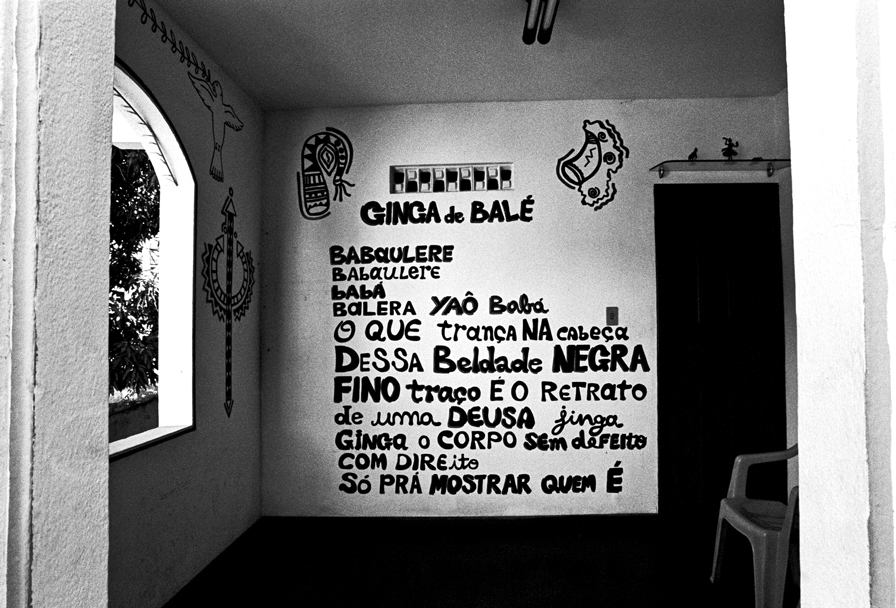 GINGA de BALÉ
BABAULERE
BABAULERE
BABÁ
BALERA YAÔ Babá
O QUE trança NA CABEÇA
DESSA Beldade NEGRA
FINO traço É O RETRAto
de uma DEUSA jinga
GINGA o CORPO SEM dEFEItO
COM DIREito
SÓ PRÁ MOSTRAR QUEM É